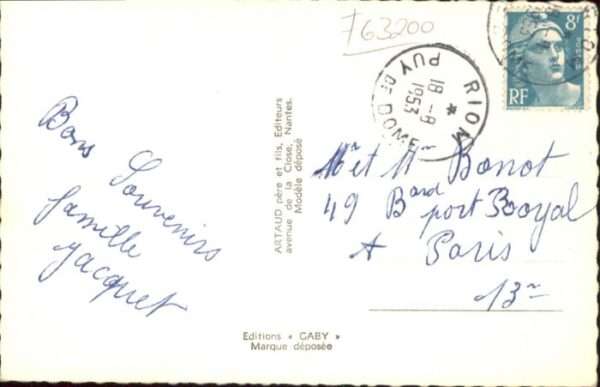 763200
8F
RF
RIOM
18-8
1953
PUY DE DOME
Bons
Souvenirs
famille
Jacquet
ARTAUD père et fils, Editeurs
avenue de la Close, Nantes.
Modèle déposé
Mr et Mm Bonot
49 Bard port Rooyal
A Paris
13m
Editions « GABY »
Marque déposée